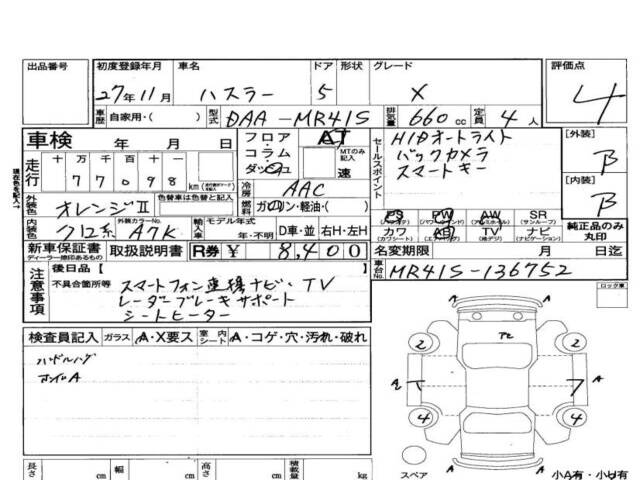 出品番号 初度登録年月 車名 ドア 形状 グレード 評価点
27年11月 ハスラー 5 X 4
車歴 自家用・( ) 型式 DAA-MR41S 排気量 660cc 定員 4人
車検 年 月 日 フロア AT セールスポイント HIDオートライト [外装] B
走行 十万千百十一 77098 km コラム・ダッシュ MTのみ記入 速 バックカメラ
スマートキー [内装] B
現在色を記入→
外装色 オレンジⅡ 色替車は色替と記入 冷房 AAC 燃料 ガソリン・軽油・( )
内装色 クロ系 外装カラーNo. A7K 輸入車 モデル年式 年・不明 D車・並 右H・左H
PS PW AW SR
カワ AB TV ナビ
(カワシート) (エアバッグ) (地デジ) (ナビゲーション)
純正品のみ丸印
新車保証書 取扱説明書 R券 ¥ 8,400 名変期限 月 日迄
ディーラー捺印あるもの
車台No. MR41S-136752
注意事項 後日品【 】
不具合箇所等 スマートフォン連携ナビ・TV
レーダーブレーキサポート
シートヒーター
ロック車
検査員記入 ガラス A・X要ス 室内シート A・コゲ・穴・汚れ・破れ
A
2 2
A A
4 4
A
スペア
長さ cm 幅 cm 高さ cm 積載量 kg
小A有・小U有